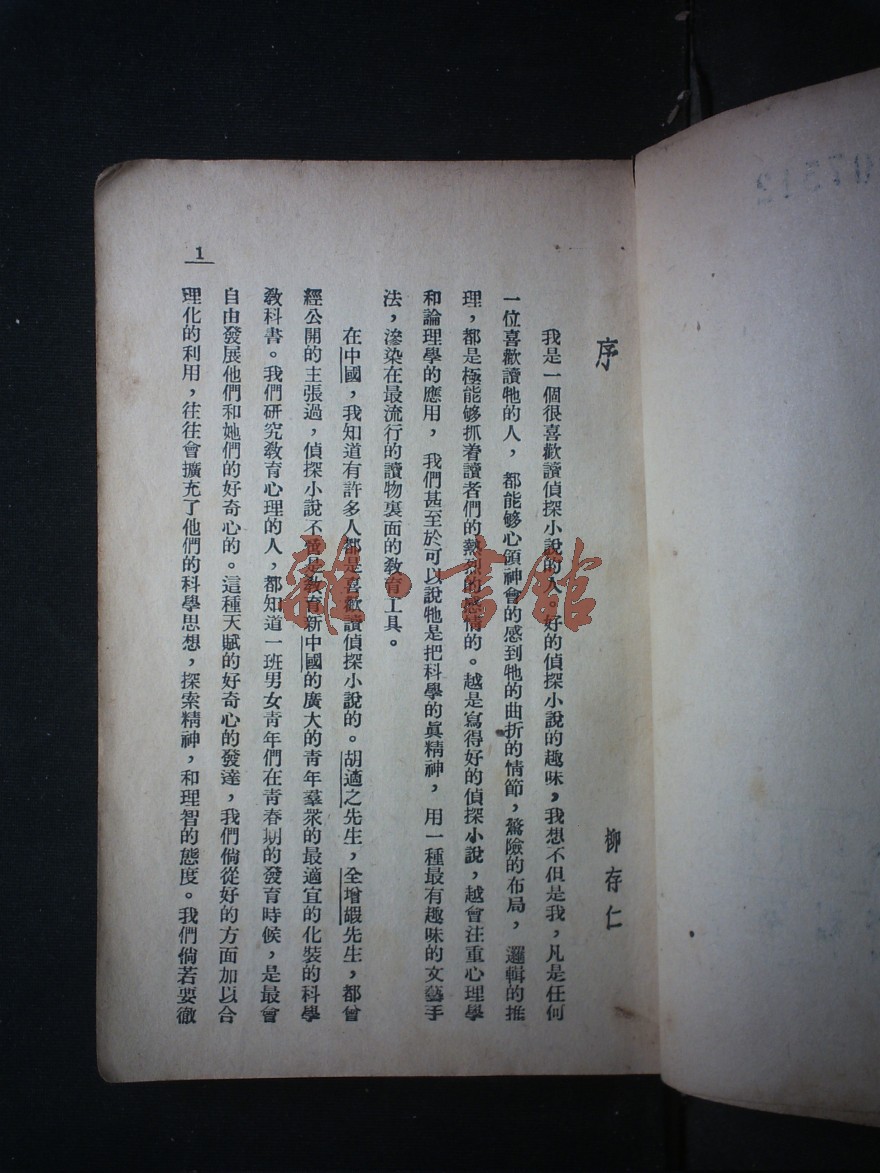 序
柳存仁
我是一個很喜歡讀偵探小說的人。好的偵探小說的趣味，我想不但是我，凡是任何
一位喜歡讀牠的人，都能够心領神會的感到牠的曲折的情節，驚險的布局，邏輯的推
理，都是極能够抓着讀者們的熱烈的感情的。越是寫得好的偵探小說，越會注重心理學
和論理學的應用，我們甚至於可以說牠是把科學的眞精神，用一種最有趣味的文藝手
法，滲染在最流行的讀物裏面的敎育工具。
在中國，我知道有許多人都是喜歡讀偵探小說的。胡適之先生，全增嘏先生，都曾
經公開的主張過，偵探小說不啻是敎育新中國的廣大的靑年羣衆的最適宜的化裝的科學
敎科書。我們研究敎育心理的人，都知道一班男女靑年們在靑春期的發育時候，是最會
自由發展他們和她們的好奇心的。這種天賦的好奇心的發達，我們倘從好的方面加以合
理化的利用，往往會擴充了他們的科學思想，探索精神，和理智的態度。我們倘若要徹
1
雜·書館